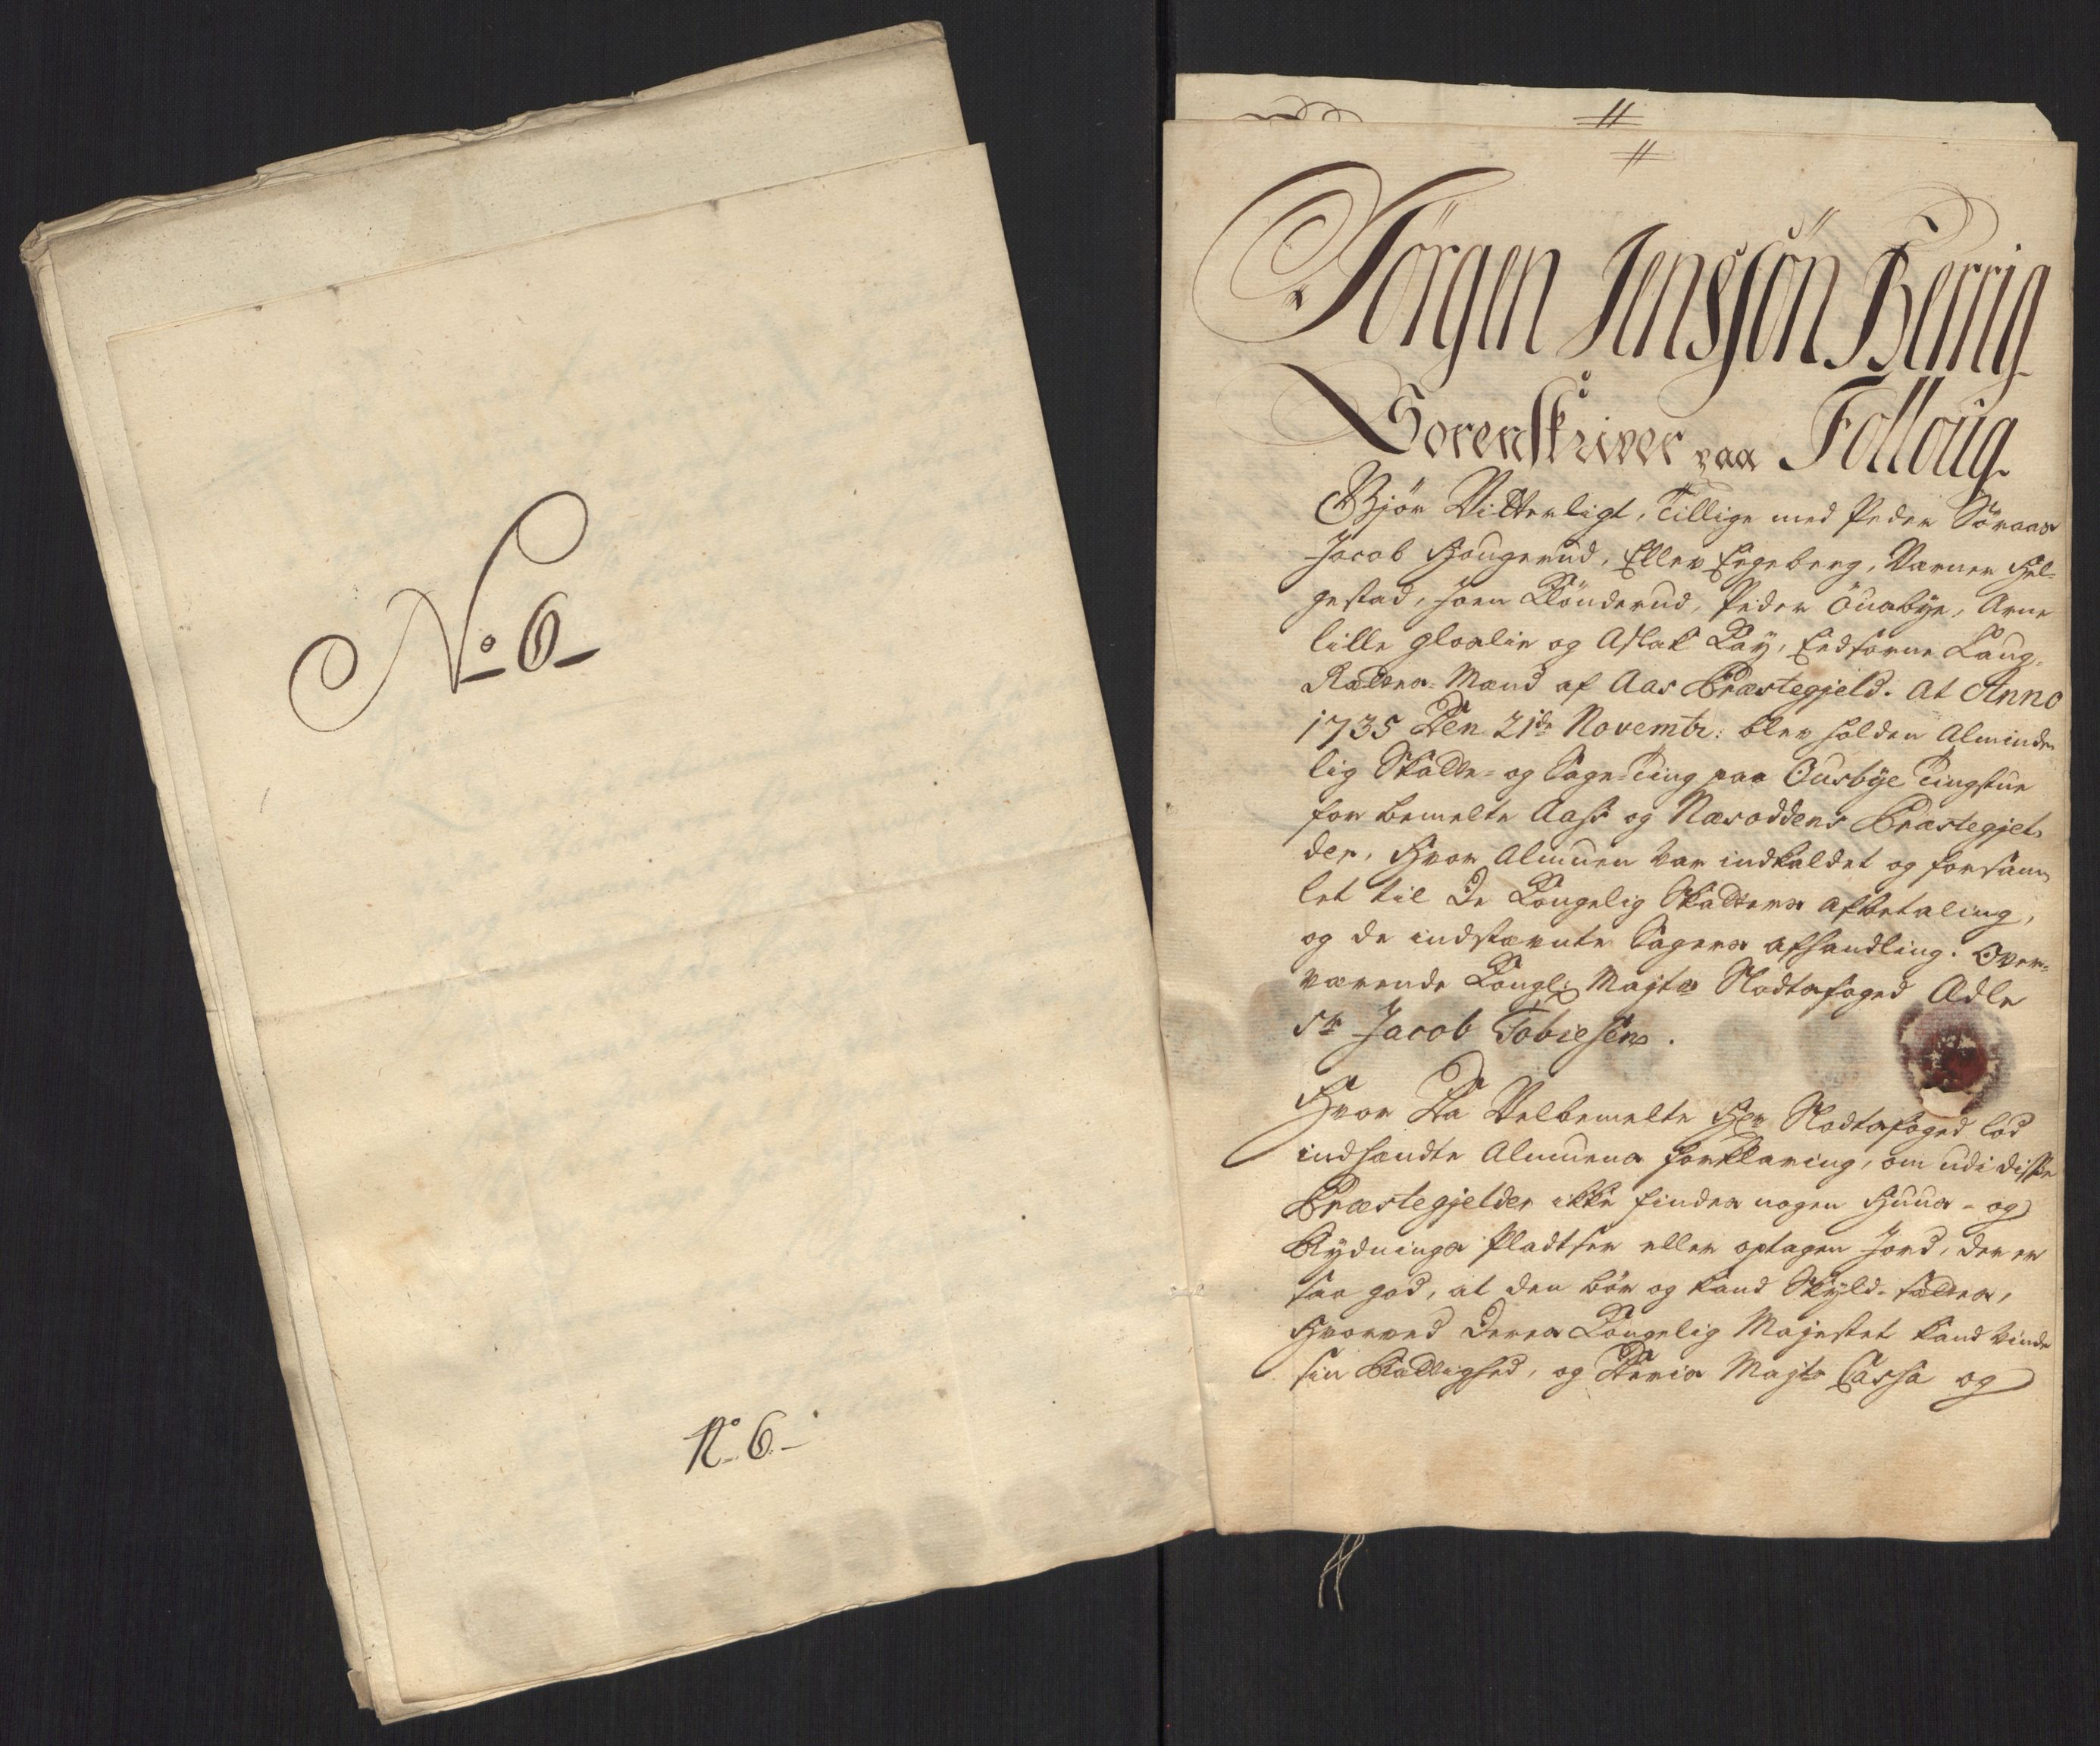 No 6
No 6.
Jörgen Jenssön Berrig
Sorenskriver paa Folloug
Gjör Vitterligt, Tillige med Peder Söraas
Jacob Hougerud, Ellev Ergeberg, Verner Hel-
gestad, Joen Klönderud, Peder Ousbye, Arne
lille Gloslie og Aslak Kay, Eedsorne Laug-
Rættes-Mænd af Aas Præstegjeld. At Anno
1735 Den 21de Novembr: blev holden Alminde
lig Skatte- og Sage-Ting paa Ousbye Tingstue
for bemelte Aass og Næsoddens Præstegjel-
der, Hvor Almuen var indkaldet og forsam
let til De Kongelig Skatters Afbetaling,
og de indstævnte Sagers afhandling. Over-
værende Kongl: Majts Slodtsfoged Ædle
Sr Jacob Tobiesen.
Hvor Da Velbemelte Hr Slodtsfoged lod
indhændte Almuens forklaring, om udi disse
Præstegjelder ikke findes nogen Huus- og
Rydnings Pladtser eller optagen Jord, der er
saa god, at den bör og kand Skyld-sættes,
Hvorved Deres Kongelig Majestet kand vinde
sin Rættighed, og Deris Majts Cassa og